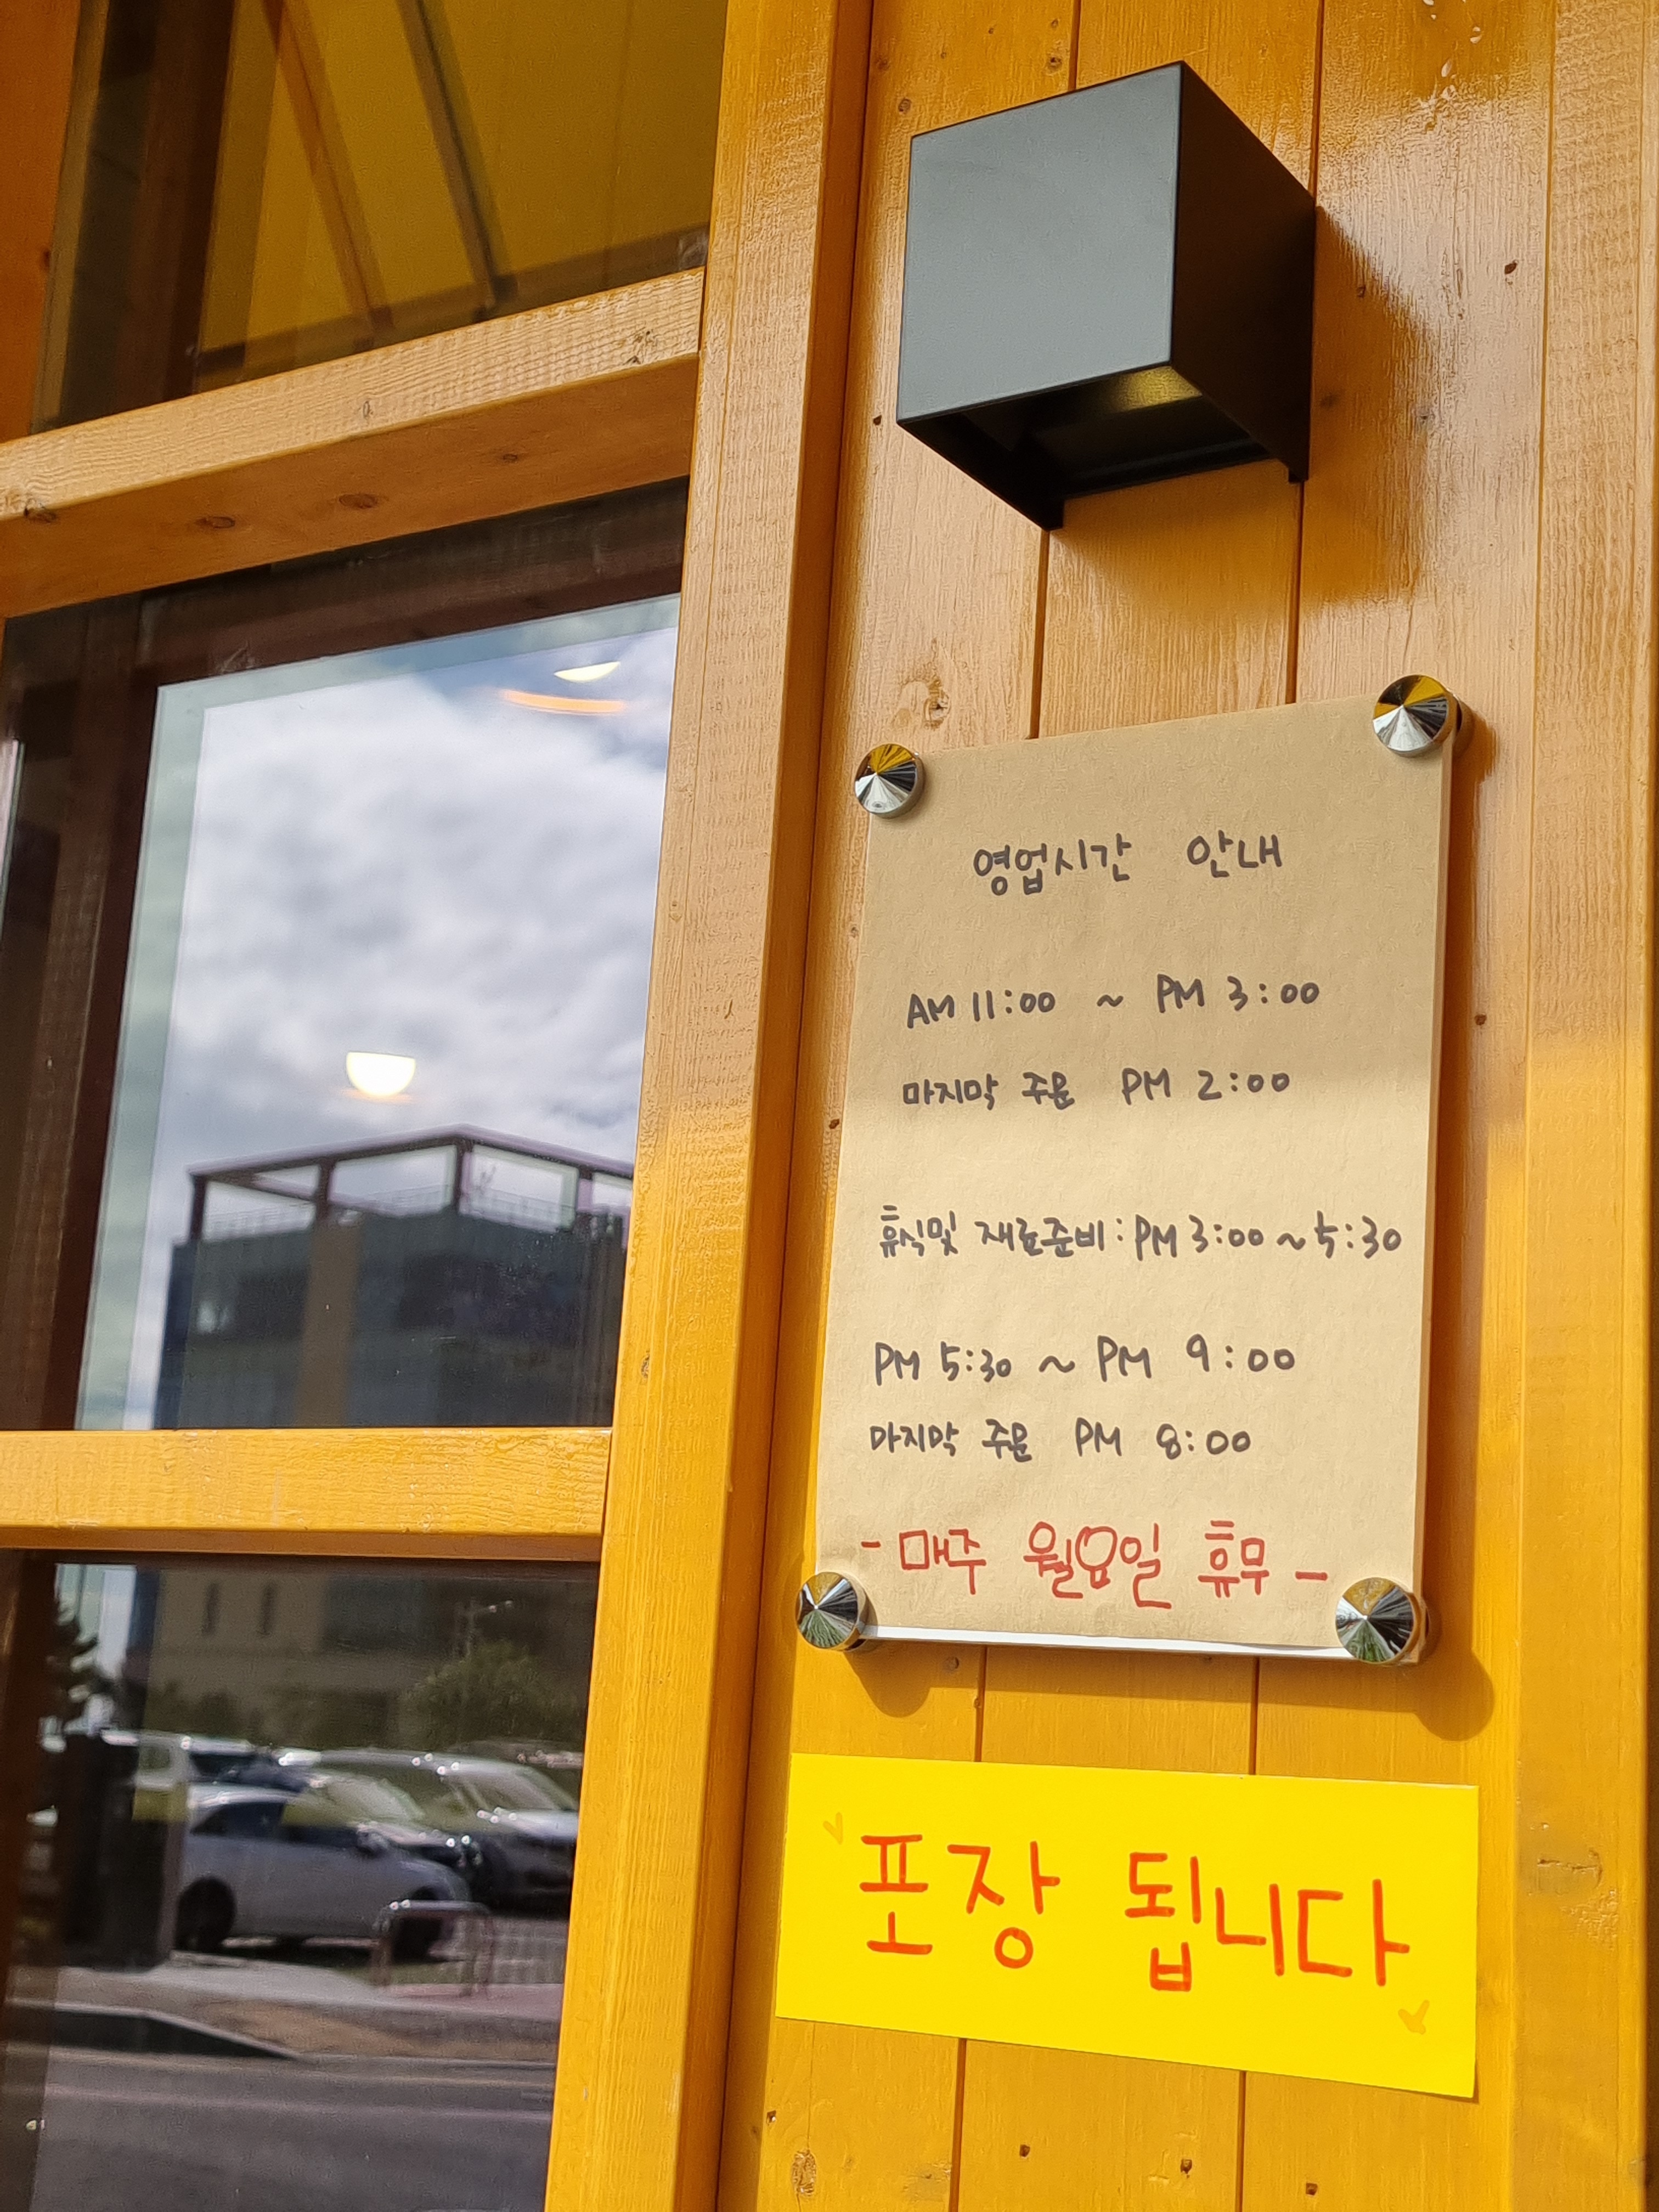 영업시간 안내
AM 11:00 ~ PM 3:00
마지막 주문 PM 2:00
휴식및 재료준비 : PM 3:00 ~ 5:30
PM 5:30 ~ PM 9:00
마지막 주문 PM 8:00
- 매주 월요일 휴무 -
포장 됩니다